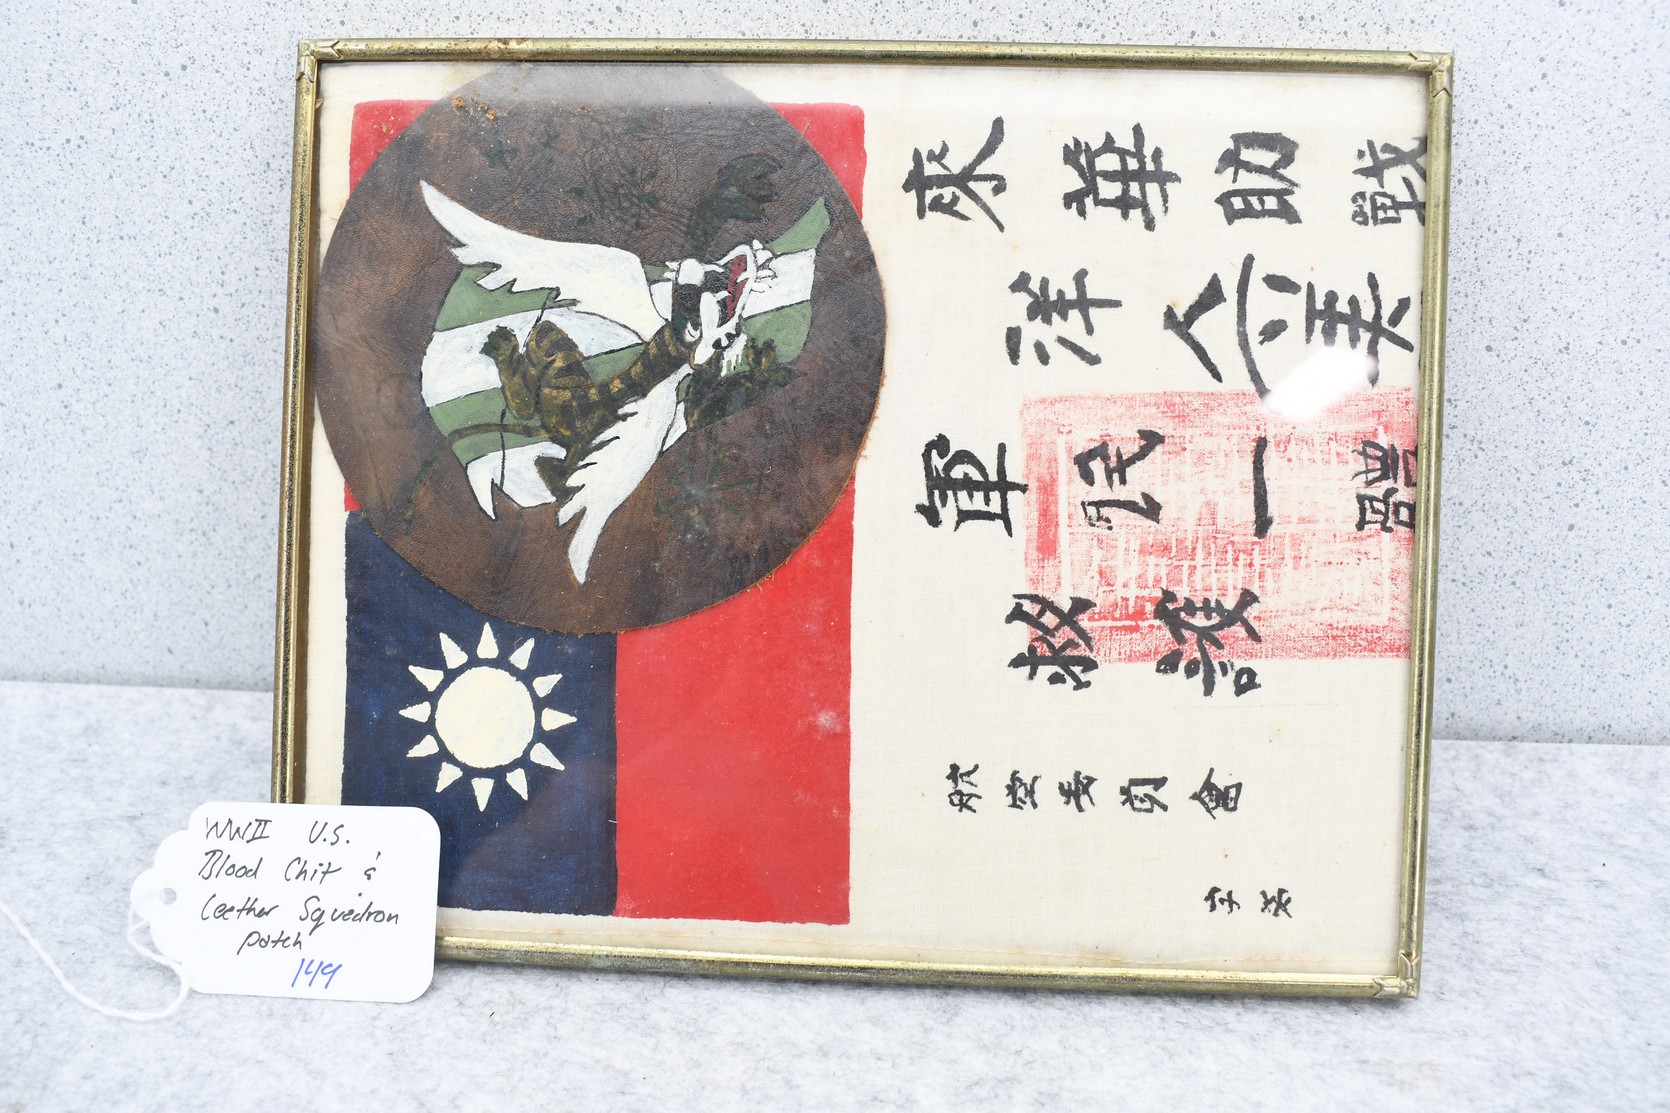 來華助戰
洋人(美
軍民一體
救護
航空委員會
字
WWII U.S.
Blood Chit &
Leather Squadron
patch
149